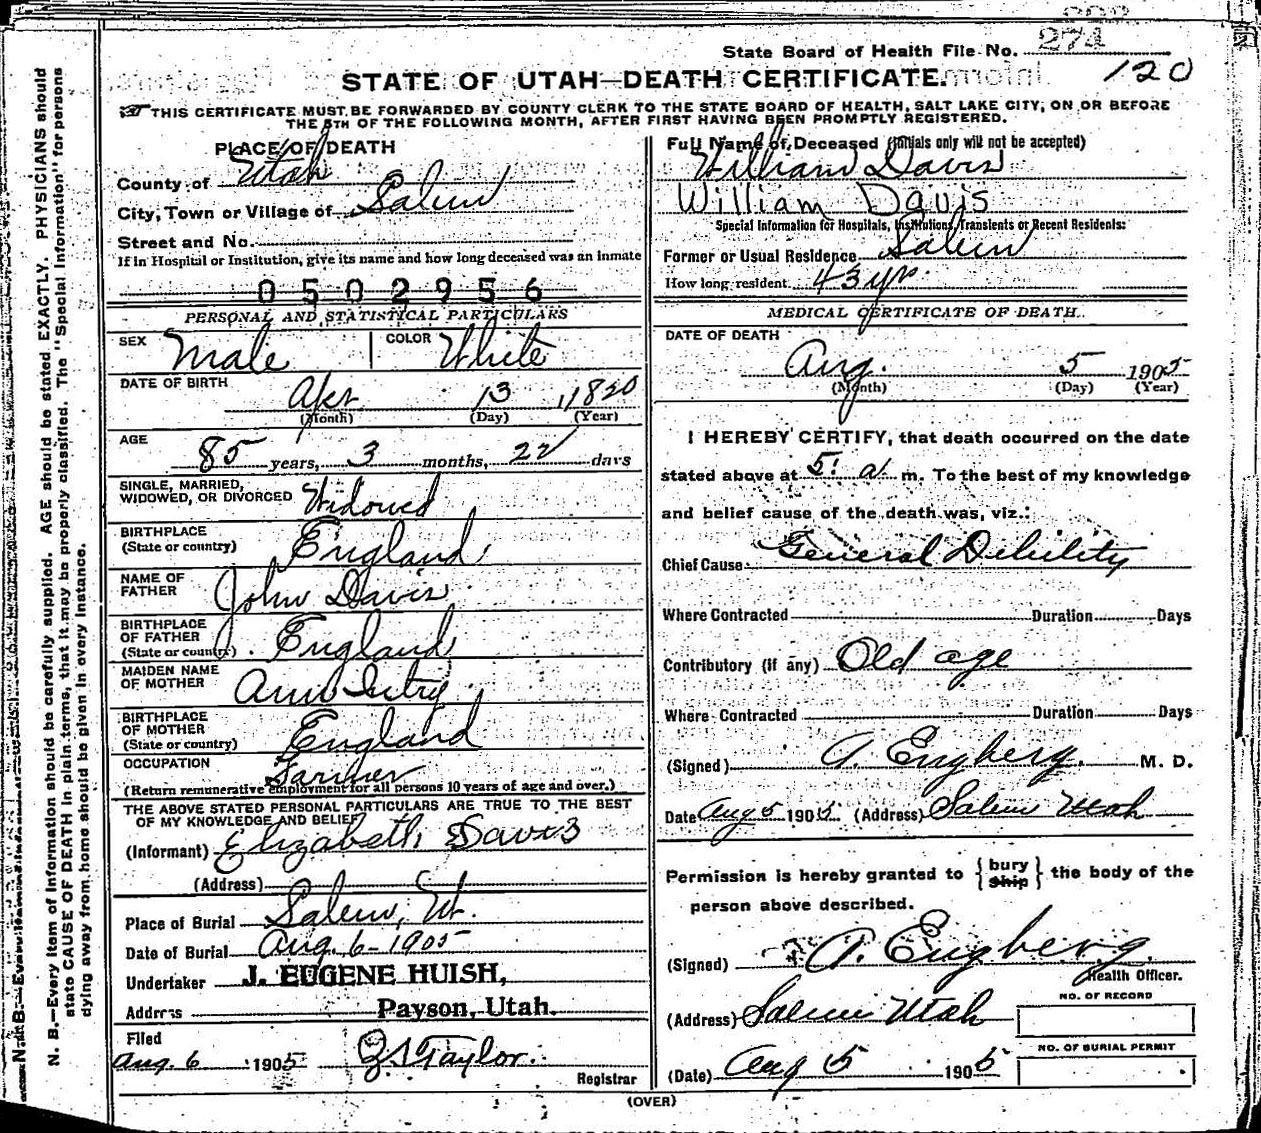 State Board of Health File No. 274
120
STATE OF UTAH—DEATH CERTIFICATE.
THIS CERTIFICATE MUST BE FORWARDED BY COUNTY CLERK TO THE STATE BOARD OF HEALTH, SALT LAKE CITY, ON OR BEFORE
THE 5TH OF THE FOLLOWING MONTH, AFTER FIRST HAVING BEEN PROMPTLY REGISTERED.
PLACE OF DEATH
County of Utah
City, Town or Village of Salem
Street and No.
If in Hospital or Institution, give its name and how long deceased was an inmate
0502956
PERSONAL AND STATISTICAL PARTICULARS
SEX Male COLOR White
DATE OF BIRTH Apr 13 1820
(Month) (Day) (Year)
AGE
85 years, 3 months, 22 days
SINGLE, MARRIED,
WIDOWED, OR DIVORCED Widowed
BIRTHPLACE
(State or country) England
NAME OF
FATHER John Davis
BIRTHPLACE
OF FATHER
(State or country) England
MAIDEN NAME
OF MOTHER Ann
BIRTHPLACE
OF MOTHER
(State or country) England
OCCUPATION Farmer
(Return remunerative employment for all persons 10 years of age and over.)
THE ABOVE STATED PERSONAL PARTICULARS ARE TRUE TO THE BEST
OF MY KNOWLEDGE AND BELIEF
(Informant) Elizabeth Davis
(Address)
Place of Burial Salem, Ut.
Date of Burial Aug. 6-1905
Undertaker J. EUGENE HUISH,
Address Payson, Utah.
Filed
Aug. 6 1905 Taylor.
Registrar
Full Name of Deceased (Initials only will not be accepted)
William Davis
William Davis
Special Information for Hospitals, Institutions, Transients or Recent Residents:
Former or Usual Residence Salem
How long resident 43 yr.
MEDICAL CERTIFICATE OF DEATH.
DATE OF DEATH
Aug. 5 1905
(Month) (Day) (Year)
I HEREBY CERTIFY, that death occurred on the date
stated above at 5: a m. To the best of my knowledge
and belief cause of the death was, viz.:
Chief Cause General Debility
Where Contracted Duration Days
Contributory (if any) Old age
Where Contracted Duration Days
(Signed) A. Engberg. M. D.
Date Aug 5 1905 (Address) Salem Utah
Permission is hereby granted to {bury ship} the body of the
person above described.
(Signed) A. Engberg
Health Officer.
(Address) Salem Utah
NO. OF RECORD
NO. OF BURIAL PERMIT
(Date) Aug 5 1905
(OVER)
N. B.—Every item of information should be carefully supplied. AGE should be stated EXACTLY. PHYSICIANS should
state CAUSE OF DEATH in plain terms, that it may be properly classified. The "Special Information" for persons
dying away from home should be given in every instance.